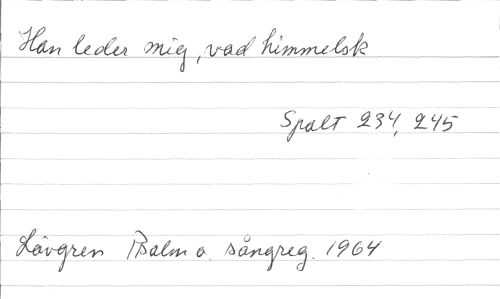 Han leder mig, vad himmelsk
Spalt 234, 245
Lövgren Psalm o. sångreg. 1964